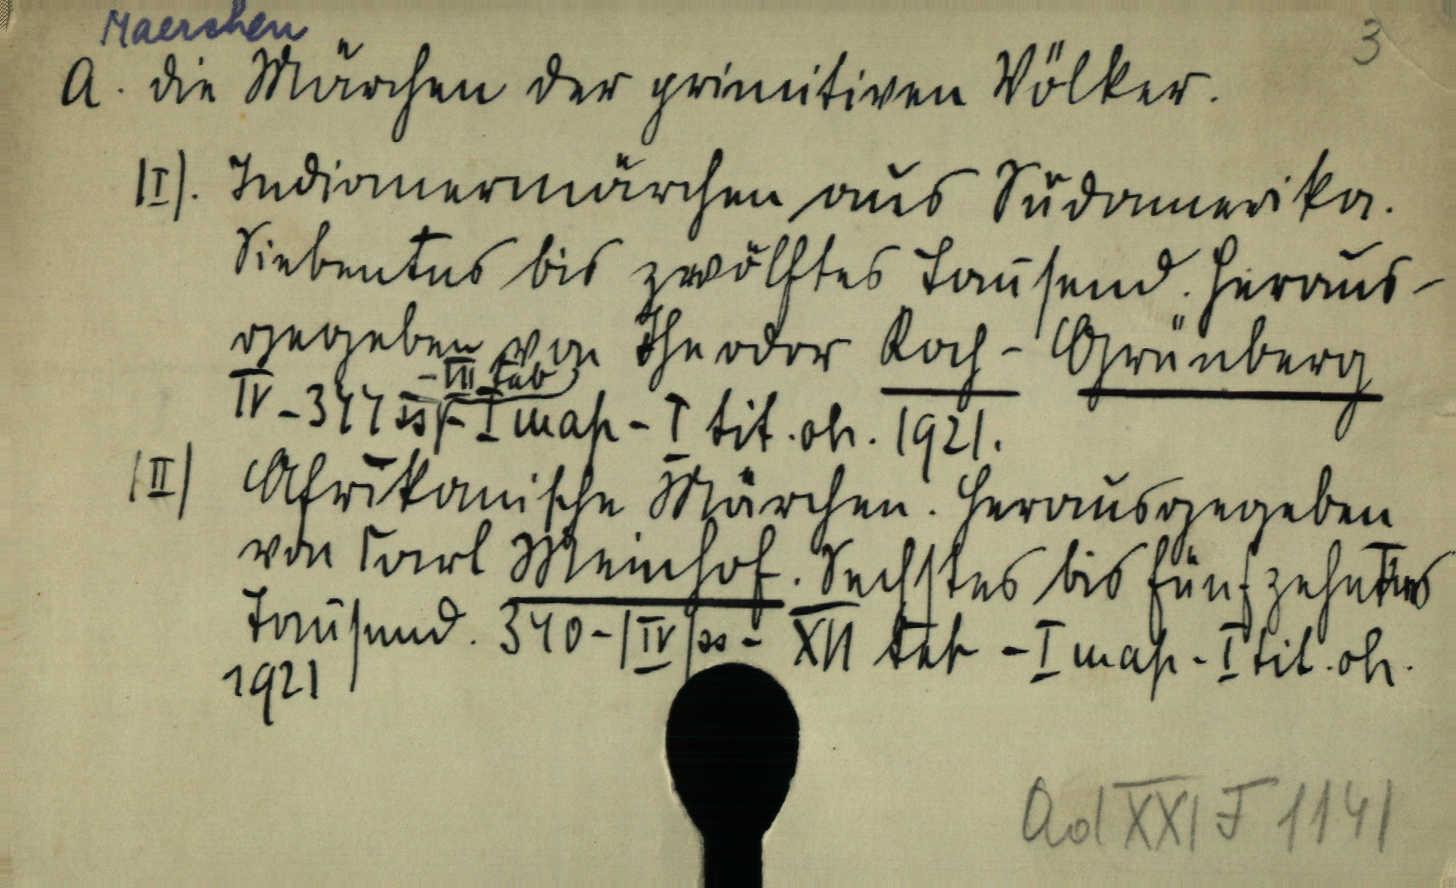 Maerchen
3
A. die Märchen der primitiven Völker.
|I|. Indianermärchen aus Südamerika.
Siebentes bis zwölftes Tausend. Heraus-
gegeben von Theodor Koch-Grünberg
- VII tab
IV-344 ss - I map - I tit. oh. 1921.
|II| Afrikanische Märchen. Herausgegeben
von Carl Meinhof. Sechstes bis fünfzehntes
Tausend. 340-|IV| ss - XII tab - I map - I tit. oh.
1921
Ad XXI F 1141